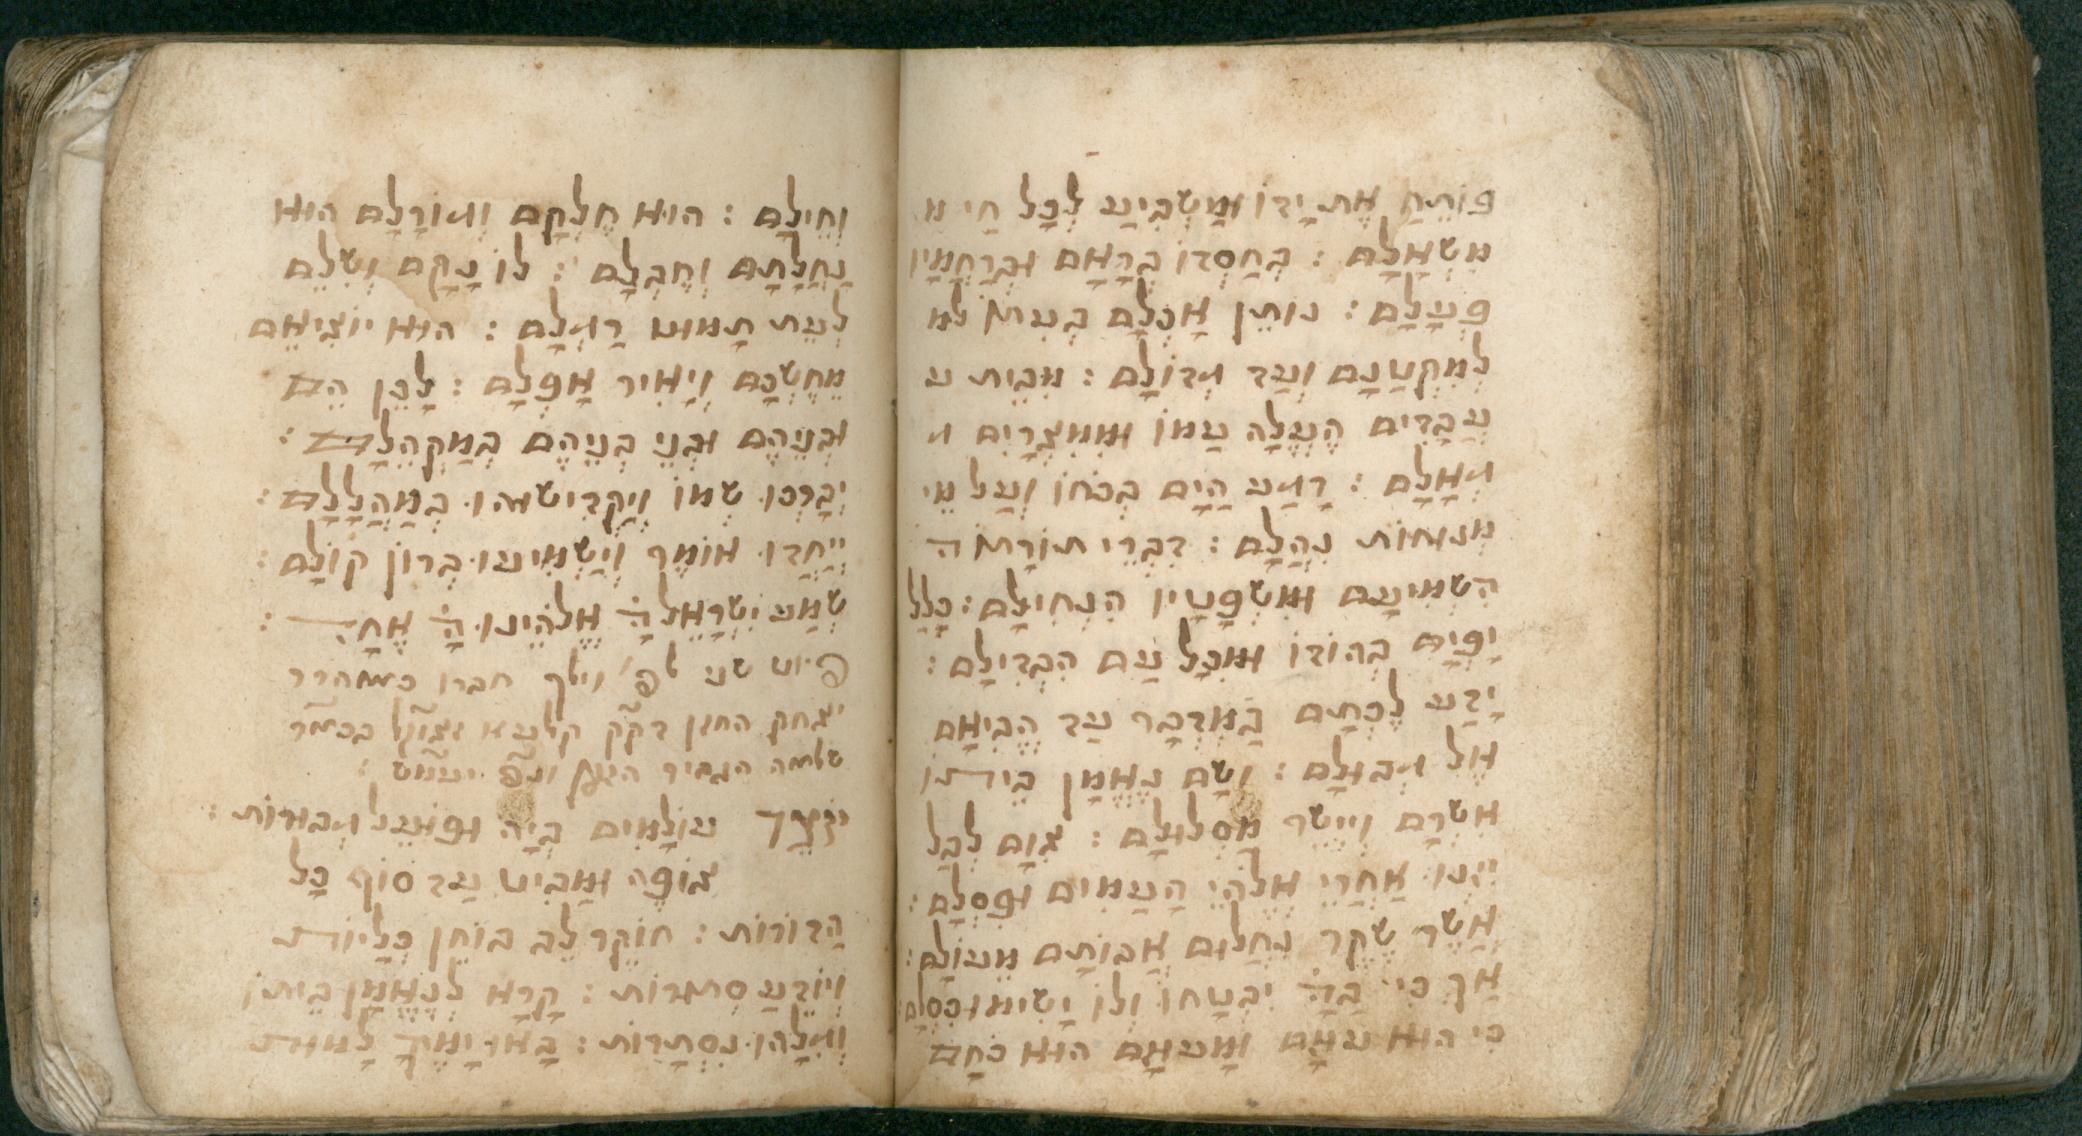 פּוֹתֵחַ אֶת יָדוֹ וּמַשְׂבִּיעַ לְכָל חַי מ
מִשְׁאָלָם : בְּחַסְדוֹ בְּרָאָם וּבְרַחֲמָיו
פְּעָלָם : נוֹתֵן אָכְלָם בְּעִתּוֹ למ
לְמִקְטַנָּם וְעַד גְדוֹלָם : מִבֵּית ע
עֲבָדִים הֶעֱלָה עַמוֹ וּמִמִצְרַיִם ג
גְאָלָם : רָגַע הַיָם בְּכֹחוֹ וְעַל מֵי
מְנוּחוֹת נִהֲלָם : דִבְרֵי תוֹרָתוֹ ה
הִשְׁמִיעָם וּמִשְׁפָּטָיו הִנְחִילָם : כָּלַל
יָפְיָם בְּהוֹדוֹ וּמִכָּל עַם הִבְדִילָם :
יָדַע לֶכְתָּם בַּמִדְבָּר עַד הֱבִיאָם
אֶל גְבוּלָם : וְשָׁם נֶאֱמָן בֵּיתוֹ
אִשְּׁרָם וְיִישֵּׁר מַסְלוּלָם : צִוָּם לְבַל
יִזְנוּ אַחֲרֵי אֱלֹהֵי הָעַמִים וּפִסְלָם :
אֲשֶׁר שֶׁקֶר נְחָלוּם אֲבוֹתָם מֵעוֹלָם :
אַךְ כִּי בַּה' יִבְטְחוּ וְלוֹ יָשִׂימוּ כִסְלָם :
כִּי הוּא עֹצָם וּמָעֻזָּם הוּא כֹּחָם
וְחֵילָם : הוּא חֶלְקָם וְגוֹרָלָם הוּא
נַחֲלָתָם וְחֶבְלָם : לוֹ נָקָם וְשִׁלֵּם
לְעֵת תָּמוּט רַגְלָם : הוּא יוֹצִיאֵם
מֵחֶשְׁכָּם וְיָאִיר אָפְלָם : לָכֵן הֵם
וּבְנֵיהֶם וּבְנֵי בְנֵיהֶם בְּמַקְהֵלָם :
יְבָרְכוּ שְׁמוֹ וְיַקְדִישׁוּהוּ בְּמַהֲלָלָם :
יְיַחֲדוּ אוֹמֶר וְיַשְׁמִיעוּ בְּרוֹן קוֹלָם :
שְׁמַע יִשְׂרָאֵל ה' אֱלֹהֵינוּ ה' אֶחָד :
פיוט שני לפ' וילך חברו כמהרר
יצחק החזן דק״ק קלעא יצ״ו בכמ״ר
שלמה הגביר
יוֹצֵר עוֹלָמִים בְּיָהּ וּפוֹעֵל גְבוּרוֹת :
צוֹפֶה וּמַבִּיט עַד סוֹף כָּל
הַדוֹרוֹת : חוֹקֵר לֵב בּוֹחֵן כְּלָיוֹת
וְיוֹדֵעַ סְתִירוֹת : קָרָא לְנֶאֱמַן בֵּיתוֹ
וְגִלָּהוּ נִסְתָּרוֹת : בָּאוּ יָמֶיךָ לָמוּת